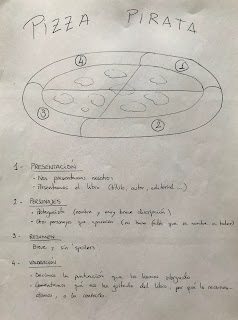 PIZZA PIRATA
4
1
3
2
1- PRESENTACIÓN
- Nos presentamos nosotros
- Presentamos el libro (título, autor, editorial ...)
2- PERSONAJES
- Protagonista (nombre y muy breve descripción)
- Otros personajes que aparezcan (no hace falta que se nombre a todos)
3- RESUMEN
Breve y sin spoilers
4- VALORACIÓN
- Decimos la puntuación que le hemos otorgado
- Comentamos qué nos ha gustado del libro, por qué lo recomen-
damos, o lo contrario.